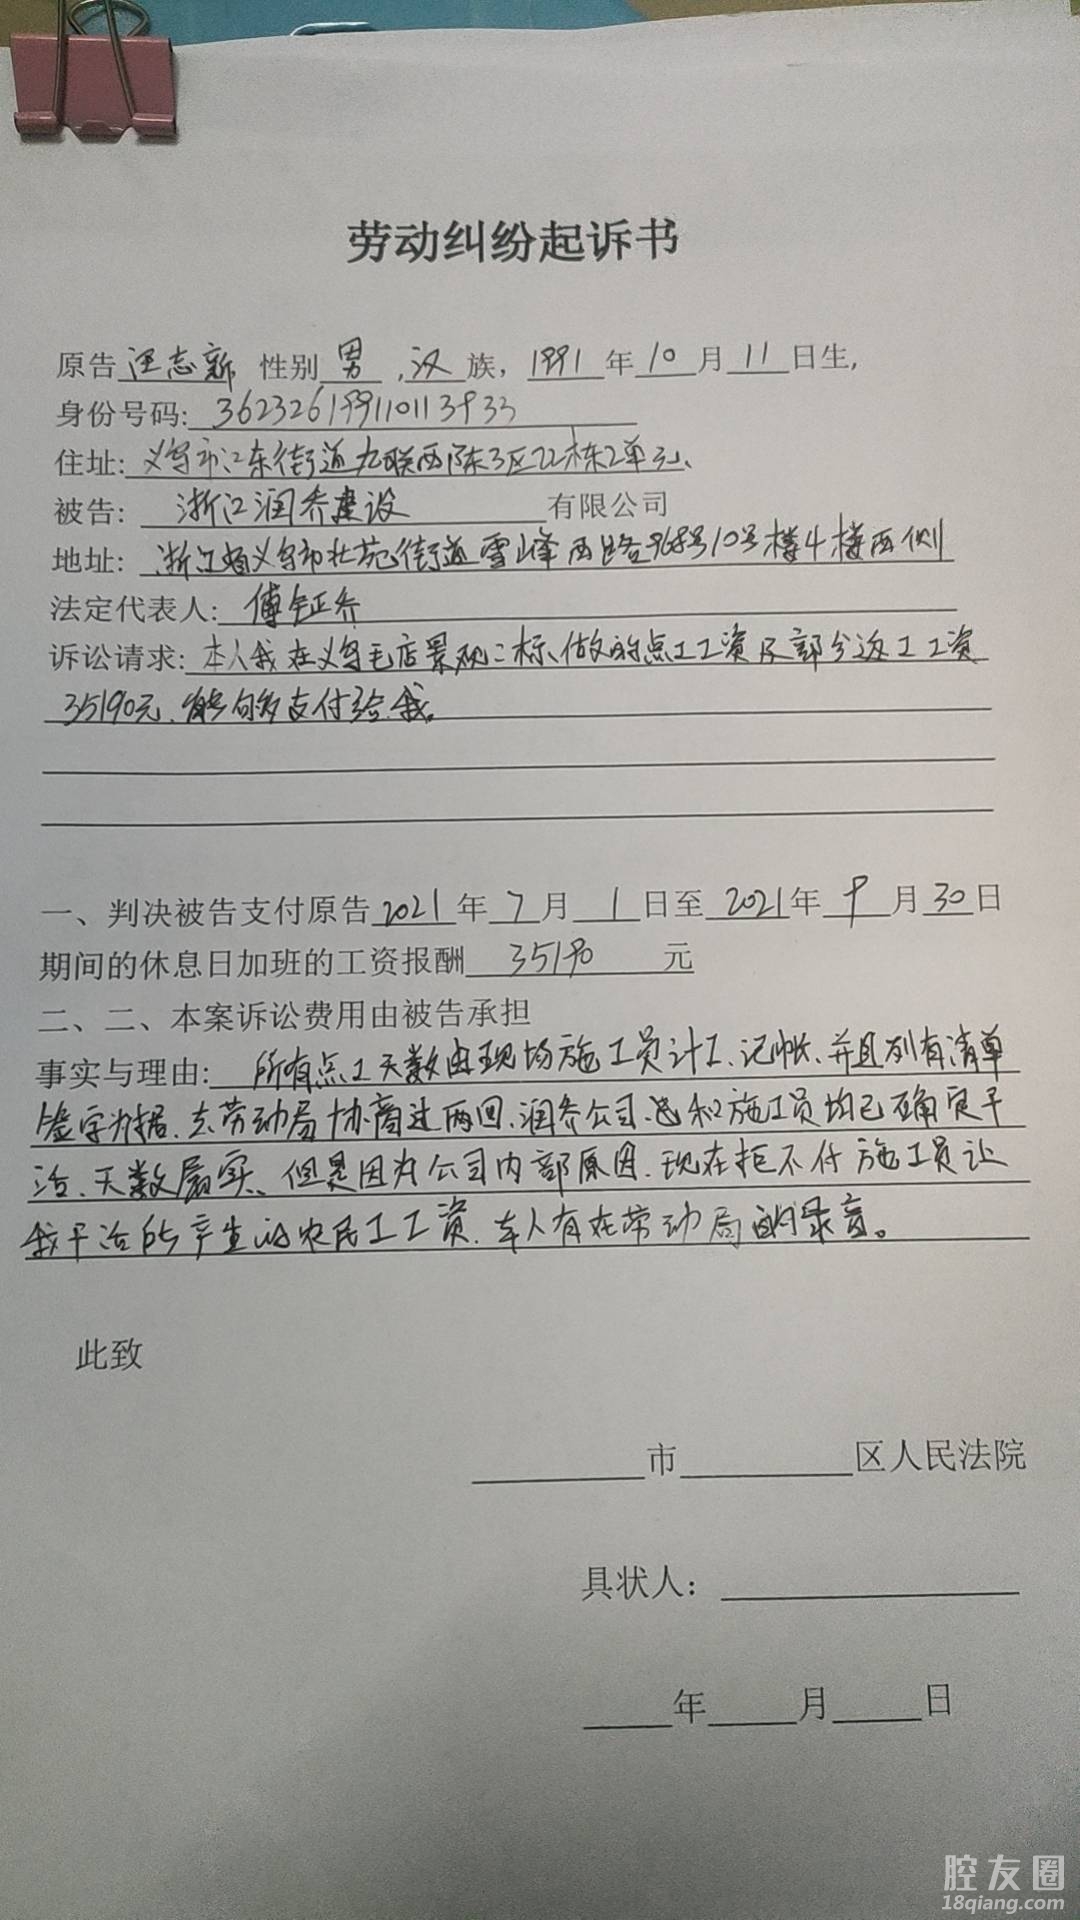 劳动纠纷起诉书
原告 汪志新 性别 男 ,汉 族, 1991 年 10 月 11 日生,
身份号码: 362326199110113933
住址: 义乌市江东街道九联西陈3区22栋2单元、
被告: 浙江润乔建设 有限公司
地址: 浙江省义乌市北苑街道雪峰西路968号10号楼4楼西侧
法定代表人: 傅钲乔
诉讼请求: 本人我在义乌毛店景观二标、做的点工工资及部分返工工资
35190元、能够支付给我。
一、判决被告支付原告 2021 年 7 月 1 日至 2021 年 9 月 30 日
期间的休息日加班的工资报酬 35190 元
二、二、本案诉讼费用由被告承担
事实与理由: 所有点工天数由现场施工员计工、记帐、并且列有清单
签字为据、去劳动局协商过两回、润乔公司总和施工员均已确定干
活、天数属实、但是因为公司内部原因、现在拒不付施工员让
我干活所产生的农民工工资、本人有在劳动局的录音。
此致
市 区人民法院
具状人:
年 月 日
腔友圈
18qiang.com